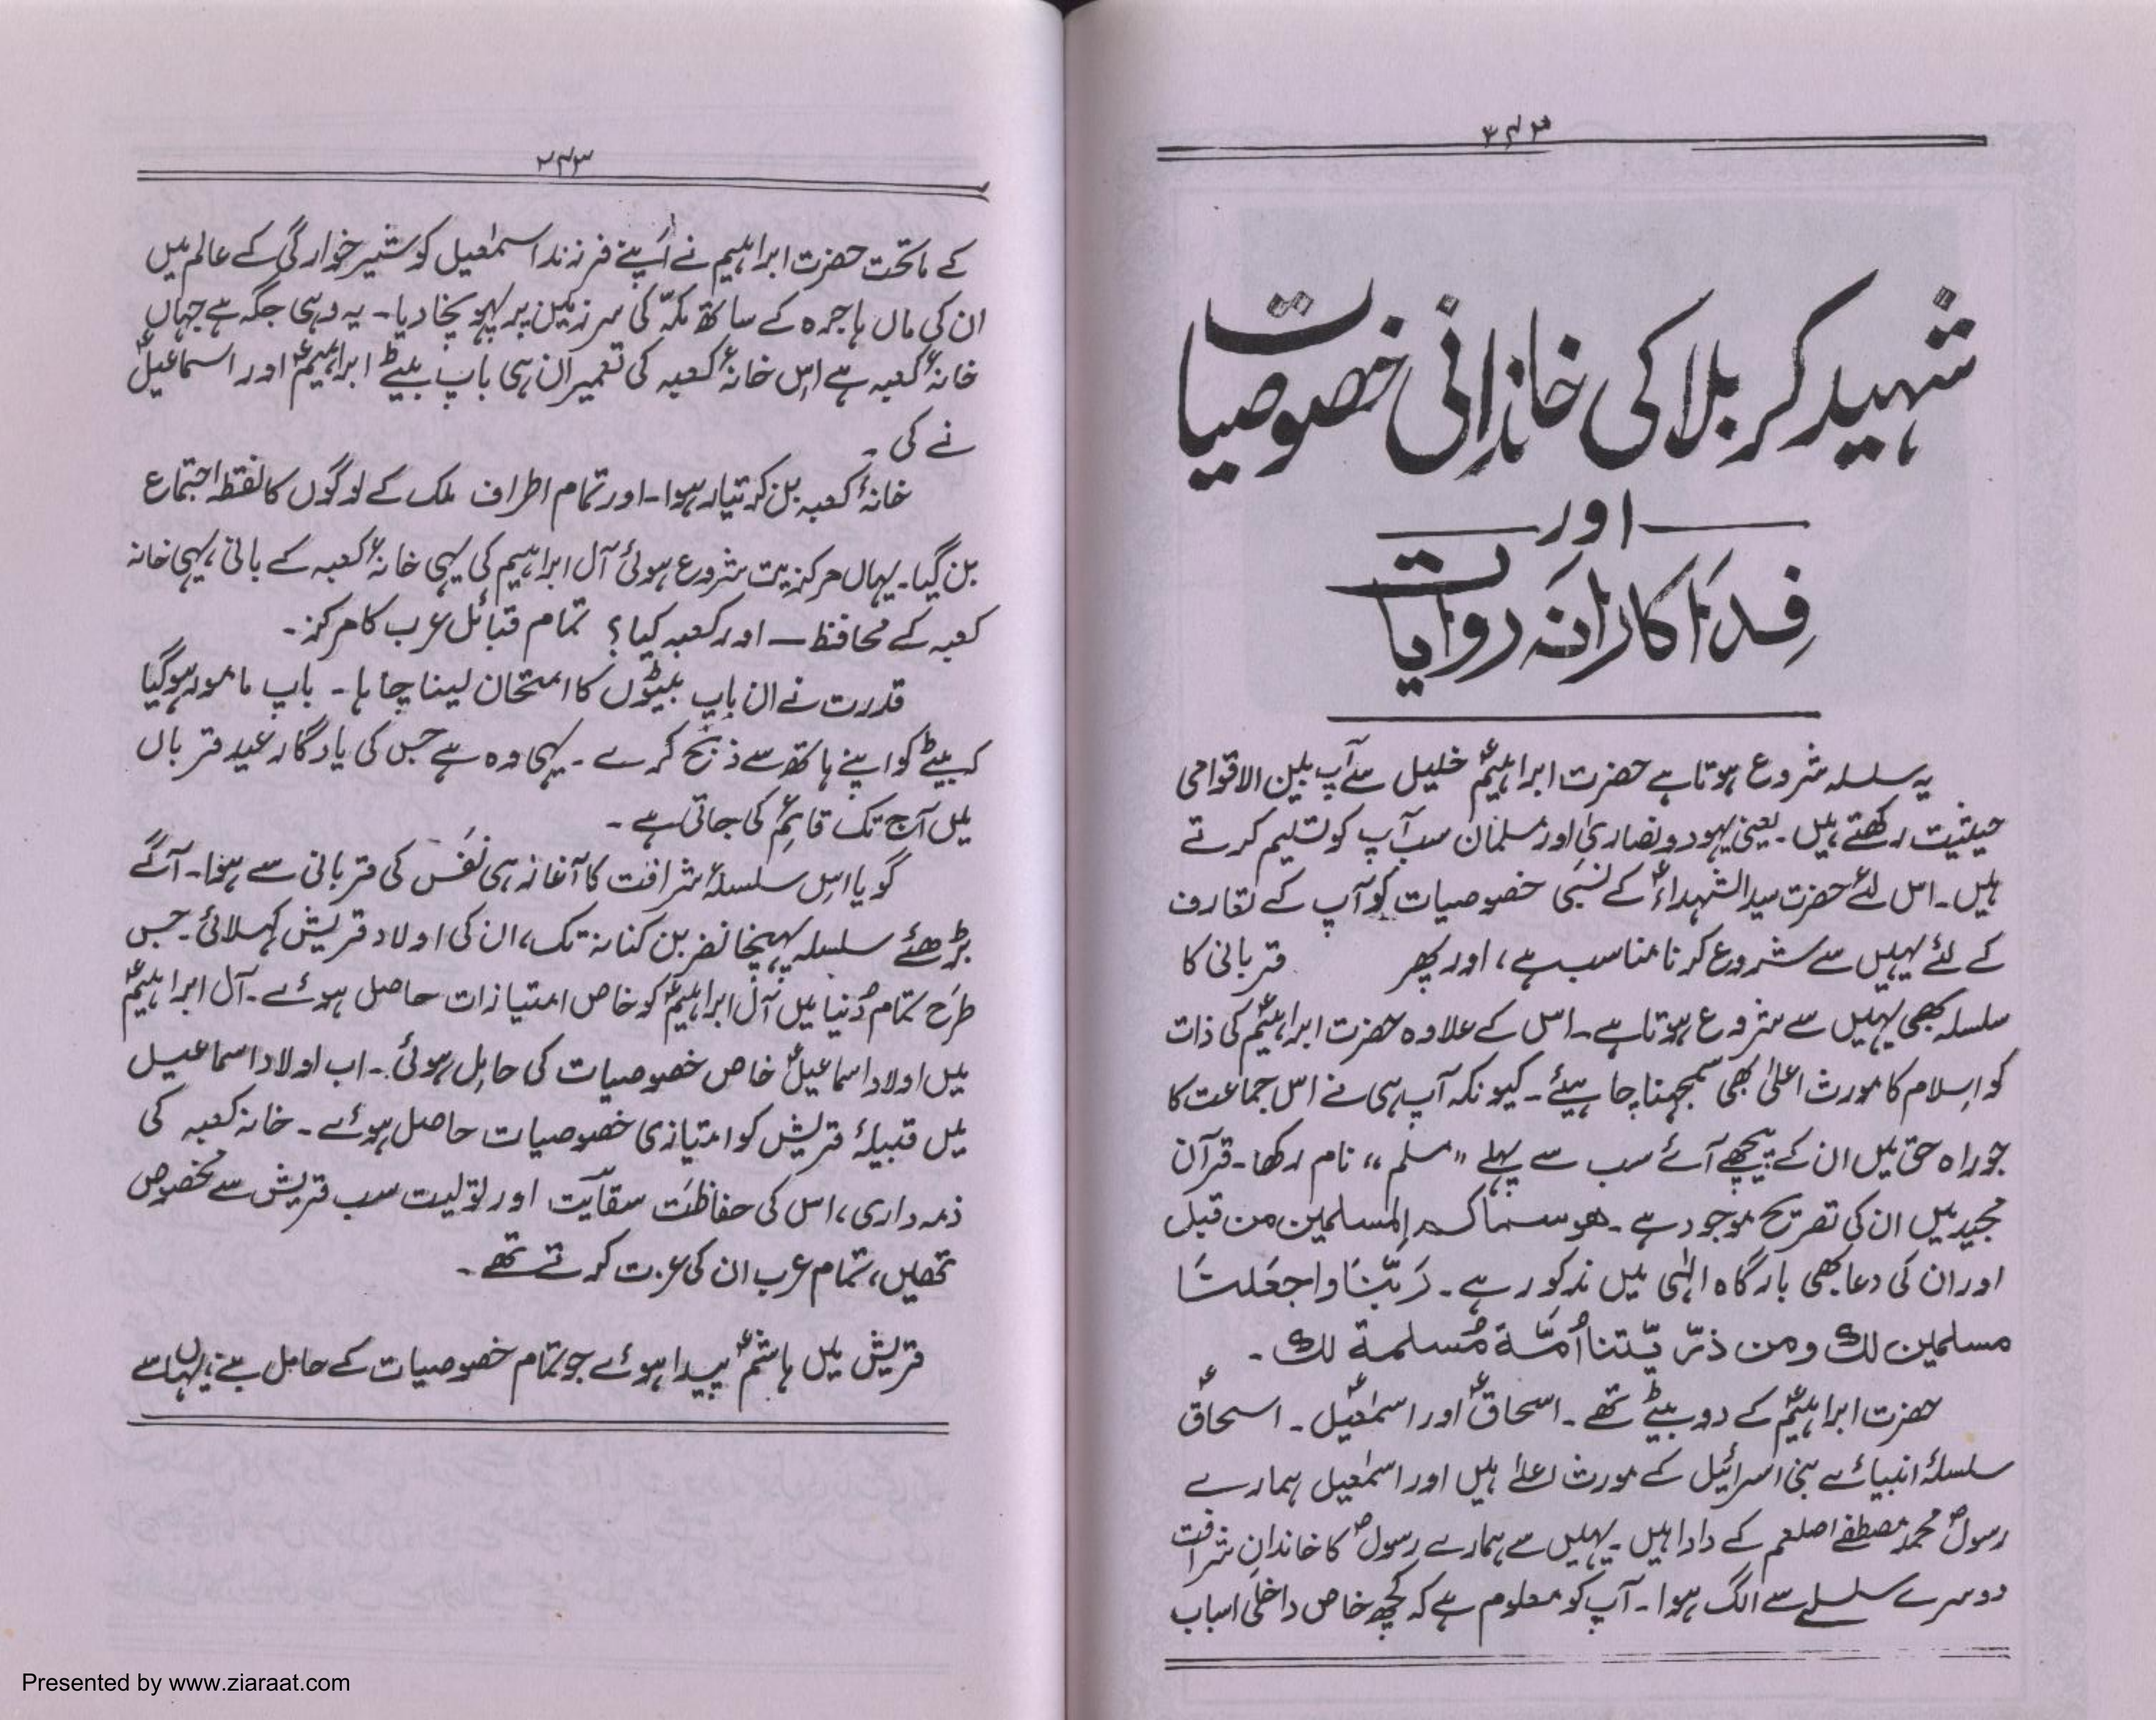 شہید کربلا کی خاندانی خصوصیات
اور
فداکارانہ روایات
یہ سلسلہ شروع ہوتا ہے حضرت ابراہیمؑ خلیل سے آپ بین الاقوامی
حیثیت رکھتے ہیں۔ یعنی یہود و نصاریٰ اور مسلمان سب آپ کو تسلیم کرتے
ہیں۔ اس لئے حضرت سید الشہداءؑ کے نسبی خصوصیات کو آپ کے تعارف
کے لئے یہیں سے شروع کرنا مناسب ہے، اور پھر قربانی کا
سلسلہ بھی یہیں سے شروع ہوتا ہے۔ اس کے علاوہ حضرت ابراہیمؑ کی ذات
کو اسلام کا مورث اعلیٰ بھی سمجھنا چاہیئے۔ کیونکہ آپ ہی نے اس جماعت کا
جو راہ حق میں ان کے پیچھے آئے سب سے پہلے "مسلم" نام رکھا۔ قرآن
مجید میں ان کی تصریح موجود ہے۔ هو سماکم المسلمین من قبل
اور ان کی دعا بھی بارگاہ الٰہی میں مذکور ہے۔ رَبَّنَا واجعَلنَا
مسلمین لك ومن ذرّیّتنا اُمَّة مُسلمة لك۔
حضرت ابراہیمؑ کے دو بیٹے تھے۔ اسحاقؑ اور اسمٰعیلؑ۔ اسحاقؑ
سلسلۂ انبیائے بنی اسرائیل کے مورث اعلےٰ ہیں اور اسمٰعیل ہمارے
رسولؐ محمد مصطفےٰ صلعم کے دادا ہیں۔ یہیں سے ہمارے رسولؐ کا خاندانِ شرافت
دوسرے سلسلے سے الگ ہوا۔ آپ کو معلوم ہے کہ کچھ خاص داخلی اسباب
۲۴۳
کے ماتحت حضرت ابراہیم نے اپنے فرزند اسمٰعیل کو شیر خوارگی کے عالم میں
ان کی ماں ہاجرہ کے ساتھ مکّہ کی سرزمین پر پہونچا دیا۔ یہ وہی جگہ ہے جہاں
خانۂ کعبہ ہے اس خانۂ کعبہ کی تعمیر ان ہی باپ بیٹے ابراہیمؑ اور اسماعیلؑ
نے کی۔
خانۂ کعبہ بن کر تیار ہوا۔ اور تمام اطراف ملک کے لوگوں کا نقطہ اجتماع
بن گیا۔ یہاں مرکزیت شروع ہوئی آل ابراہیم کی یہی خانۂ کعبہ کے بانی، یہی خانہ
کعبہ کے محافظ — اور کعبہ کیا؟ تمام قبائل عرب کا مرکز۔
قدرت نے ان باپ بیٹوں کا امتحان لینا چاہا۔ باپ مامور ہو گیا
کہ بیٹے کو اپنے ہاتھ سے ذبح کرے۔ یہی وہ ہے جس کی یادگار عید قرباں
میں آج تک قائم کی جاتی ہے۔
گویا اس سلسلۂ شرافت کا آغاز ہی نفس کی قربانی سے ہوا۔ آگے
بڑھئے سلسلہ پہنچا نضر بن کنانہ تک، ان کی اولاد قریش کہلائی۔ جس
طرح تمام دُنیا میں آل ابراہیمؑ کو خاص امتیازات حاصل ہوئے۔ آل ابراہیمؑ
میں اولاد اسماعیلؑ خاص خصوصیات کی حامل ہوئی۔ اب اولاد اسماعیل
میں قبیلۂ قریش کو امتیازی خصوصیات حاصل ہوئے۔ خانہ کعبہ کی
ذمہ داری، اس کی حفاظت سقایت اور تولیت سب قریش سے مخصوص
تھیں، تمام عرب ان کی عزت کرتے تھے۔
قریش میں ہاشمؑ پیدا ہوئے جو تمام خصوصیات کے حامل بنے، یہاں سے
Presented by www.ziaraat.com